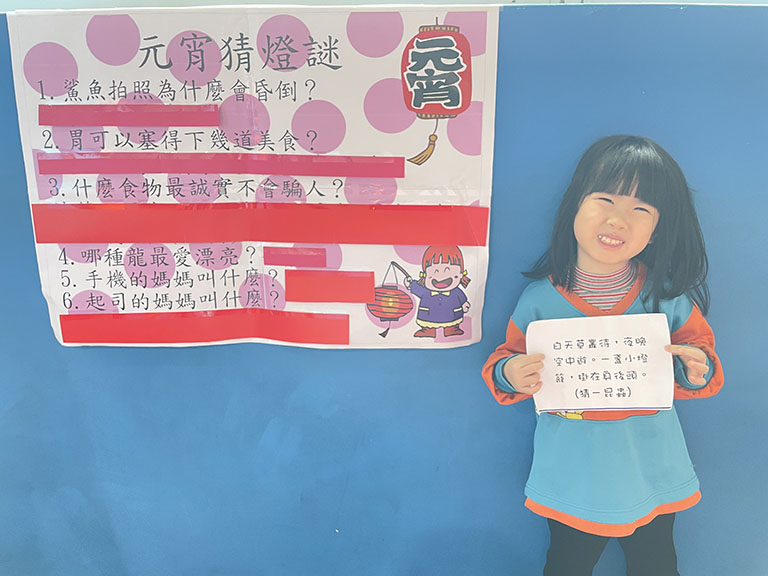 元宵猜燈謎
1. 鯊魚拍照為什麼會昏倒？
2. 胃可以塞得下幾道美食？
3. 什麼食物最誠實不會騙人？
4. 哪種龍最愛漂亮？
5. 手機的媽媽叫什麼？
6. 起司的媽媽叫什麼？
元宵
白天草叢待，夜晚
空中遊。一盞小燈
籠，掛在身後頭。
(猜一昆蟲)